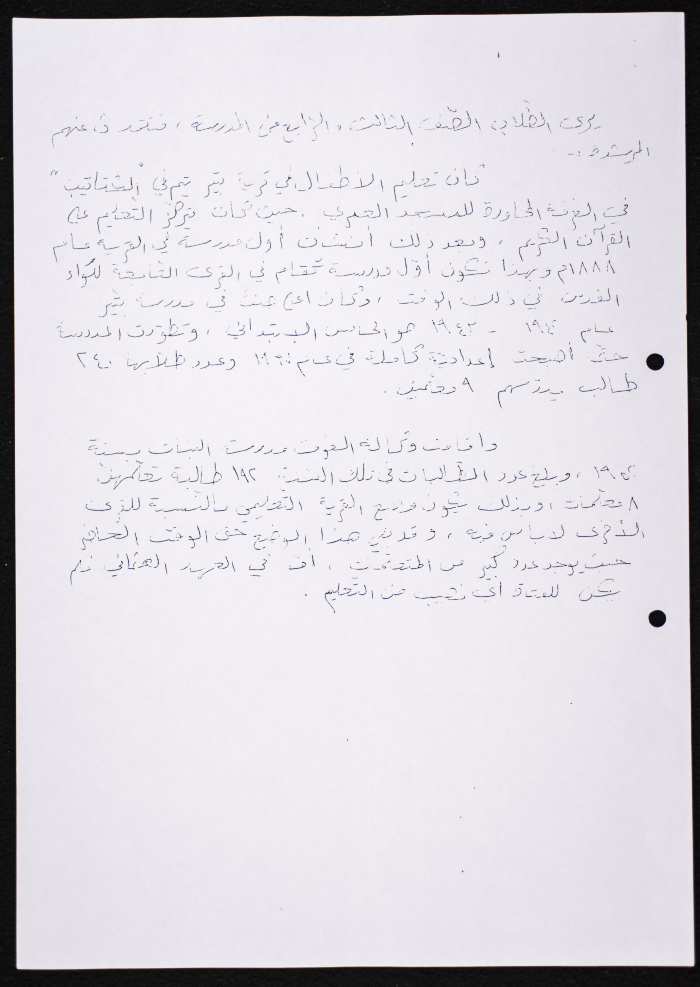 يرى الطلاب الصف الثالث والرابع من المدرسة ، عنهم
المرشدون ..
كان تعليم الأطفال في قرية بتير يتم في "الكتاتيب"
في الغرفة المجاورة للمسجد العمري . حيث كان يتركز التعليم على
القرآن الكريم ، وبعد ذلك أنشأت أول مدرسة في القرية عام
١٨٨٨م وبهذا تكون أوّل مدرسة تُقام في القرى التابعة للواء
القدس في ذلك الوقت ، وكان اعلى صف في مدرسة بتير
عام ١٩٤٠ - ١٩٤٢ هو الخامس الابتدائي ، وتطوّرت المدرسة
حتى أصبحت إعدادية كاملة في عام وعدد طلابها ٢٤٠
طالب يدرّسهم ٩ معلمين .
واقامت وكالة الغوث مدرسة البنات بسنة
، وبلغ عدد الطالبات في تلك السنة ١٩٢ طالبة تعلّمهن
٨ معلمات ، وبذلك يكون وضع القرية التعليمي بالنسبة للقرى
الأخرى لا باس فيه ، وقد بقي هذا الوضع حتى الوقت الحاضر
حيث يوجد عدد كبير من ، أما في العهد العثماني فلم
يكن للفتاة أي نصيب من التعليم .